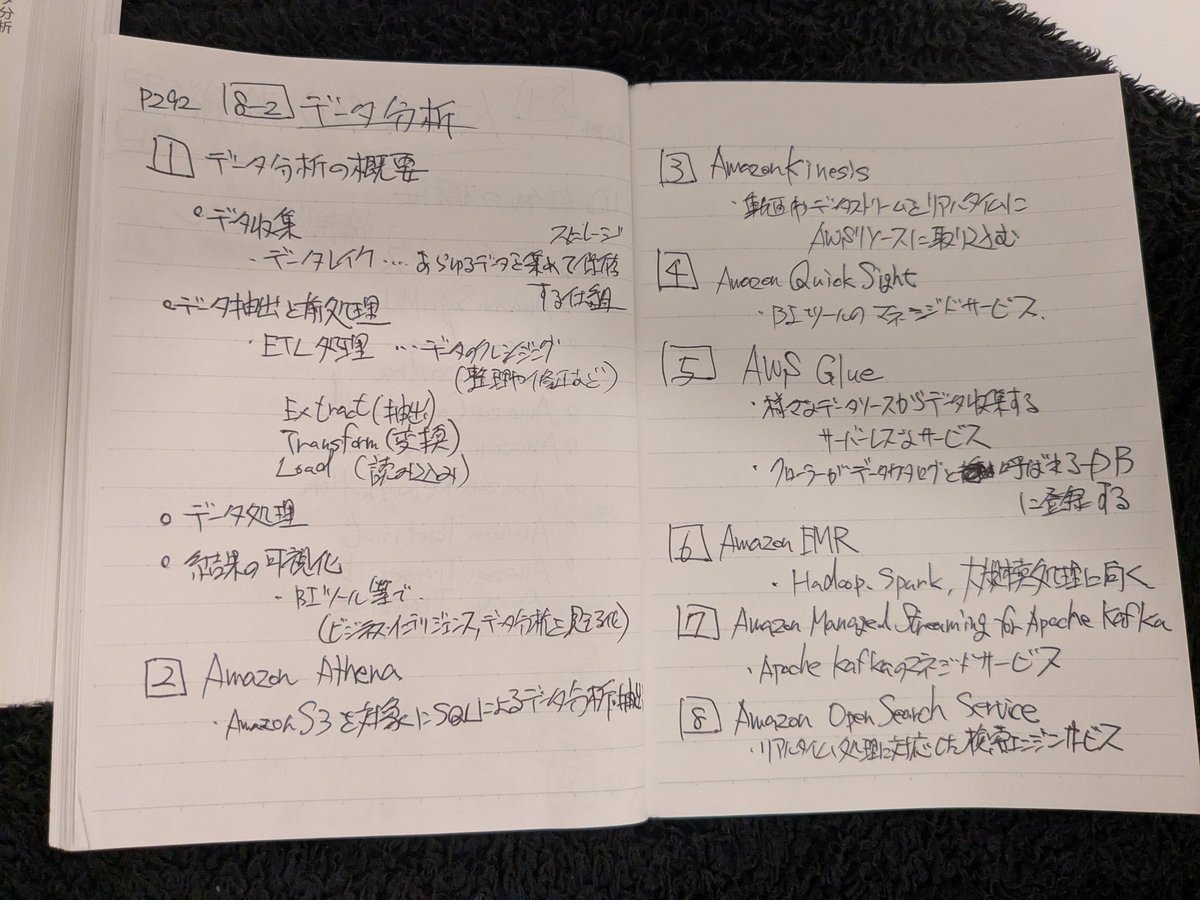 タ分析
P292 8-2 データ分析
1 データ分析の概要
○データ収集
ストレージ
・データレイク‥‥あらゆるデータを集めて保存
する仕組
○データ抽出と前処理
・ETL処理 …データのクレンジング
(整理や修正など)
Extract(抽出)
Transform(変換)
Load (読み込み)
○ データ処理
○ 結果の可視化
・BIツール等で
(ビジネスインテリジェンス,データ分析と見える化)
2 Amazon Athena
・Amazon S3を対象にSQLによるデータ分析・抽出
3 Amazon Kinesis
・動画やデータストリームをリアルタイムに
AWSリソースに取り込む
4 Amazon Quick Sight
・BIツールのマネージドサービス.
5 AWS Glue
・様々なデータソースからデータ収集する
サーバーレスなサービス
・クローラーがデータカタログと呼ばれるDB
に登録する
6 Amazon EMR
・Hadoop. Spark, 大規模処理に向く
7 Amazon Managed Streaming for Apache Kafka
・Apache Kafkaのマネジドサービス
8 Amazon Open Search Service
・リアルタイム処理に対応した検索エンジンサービス